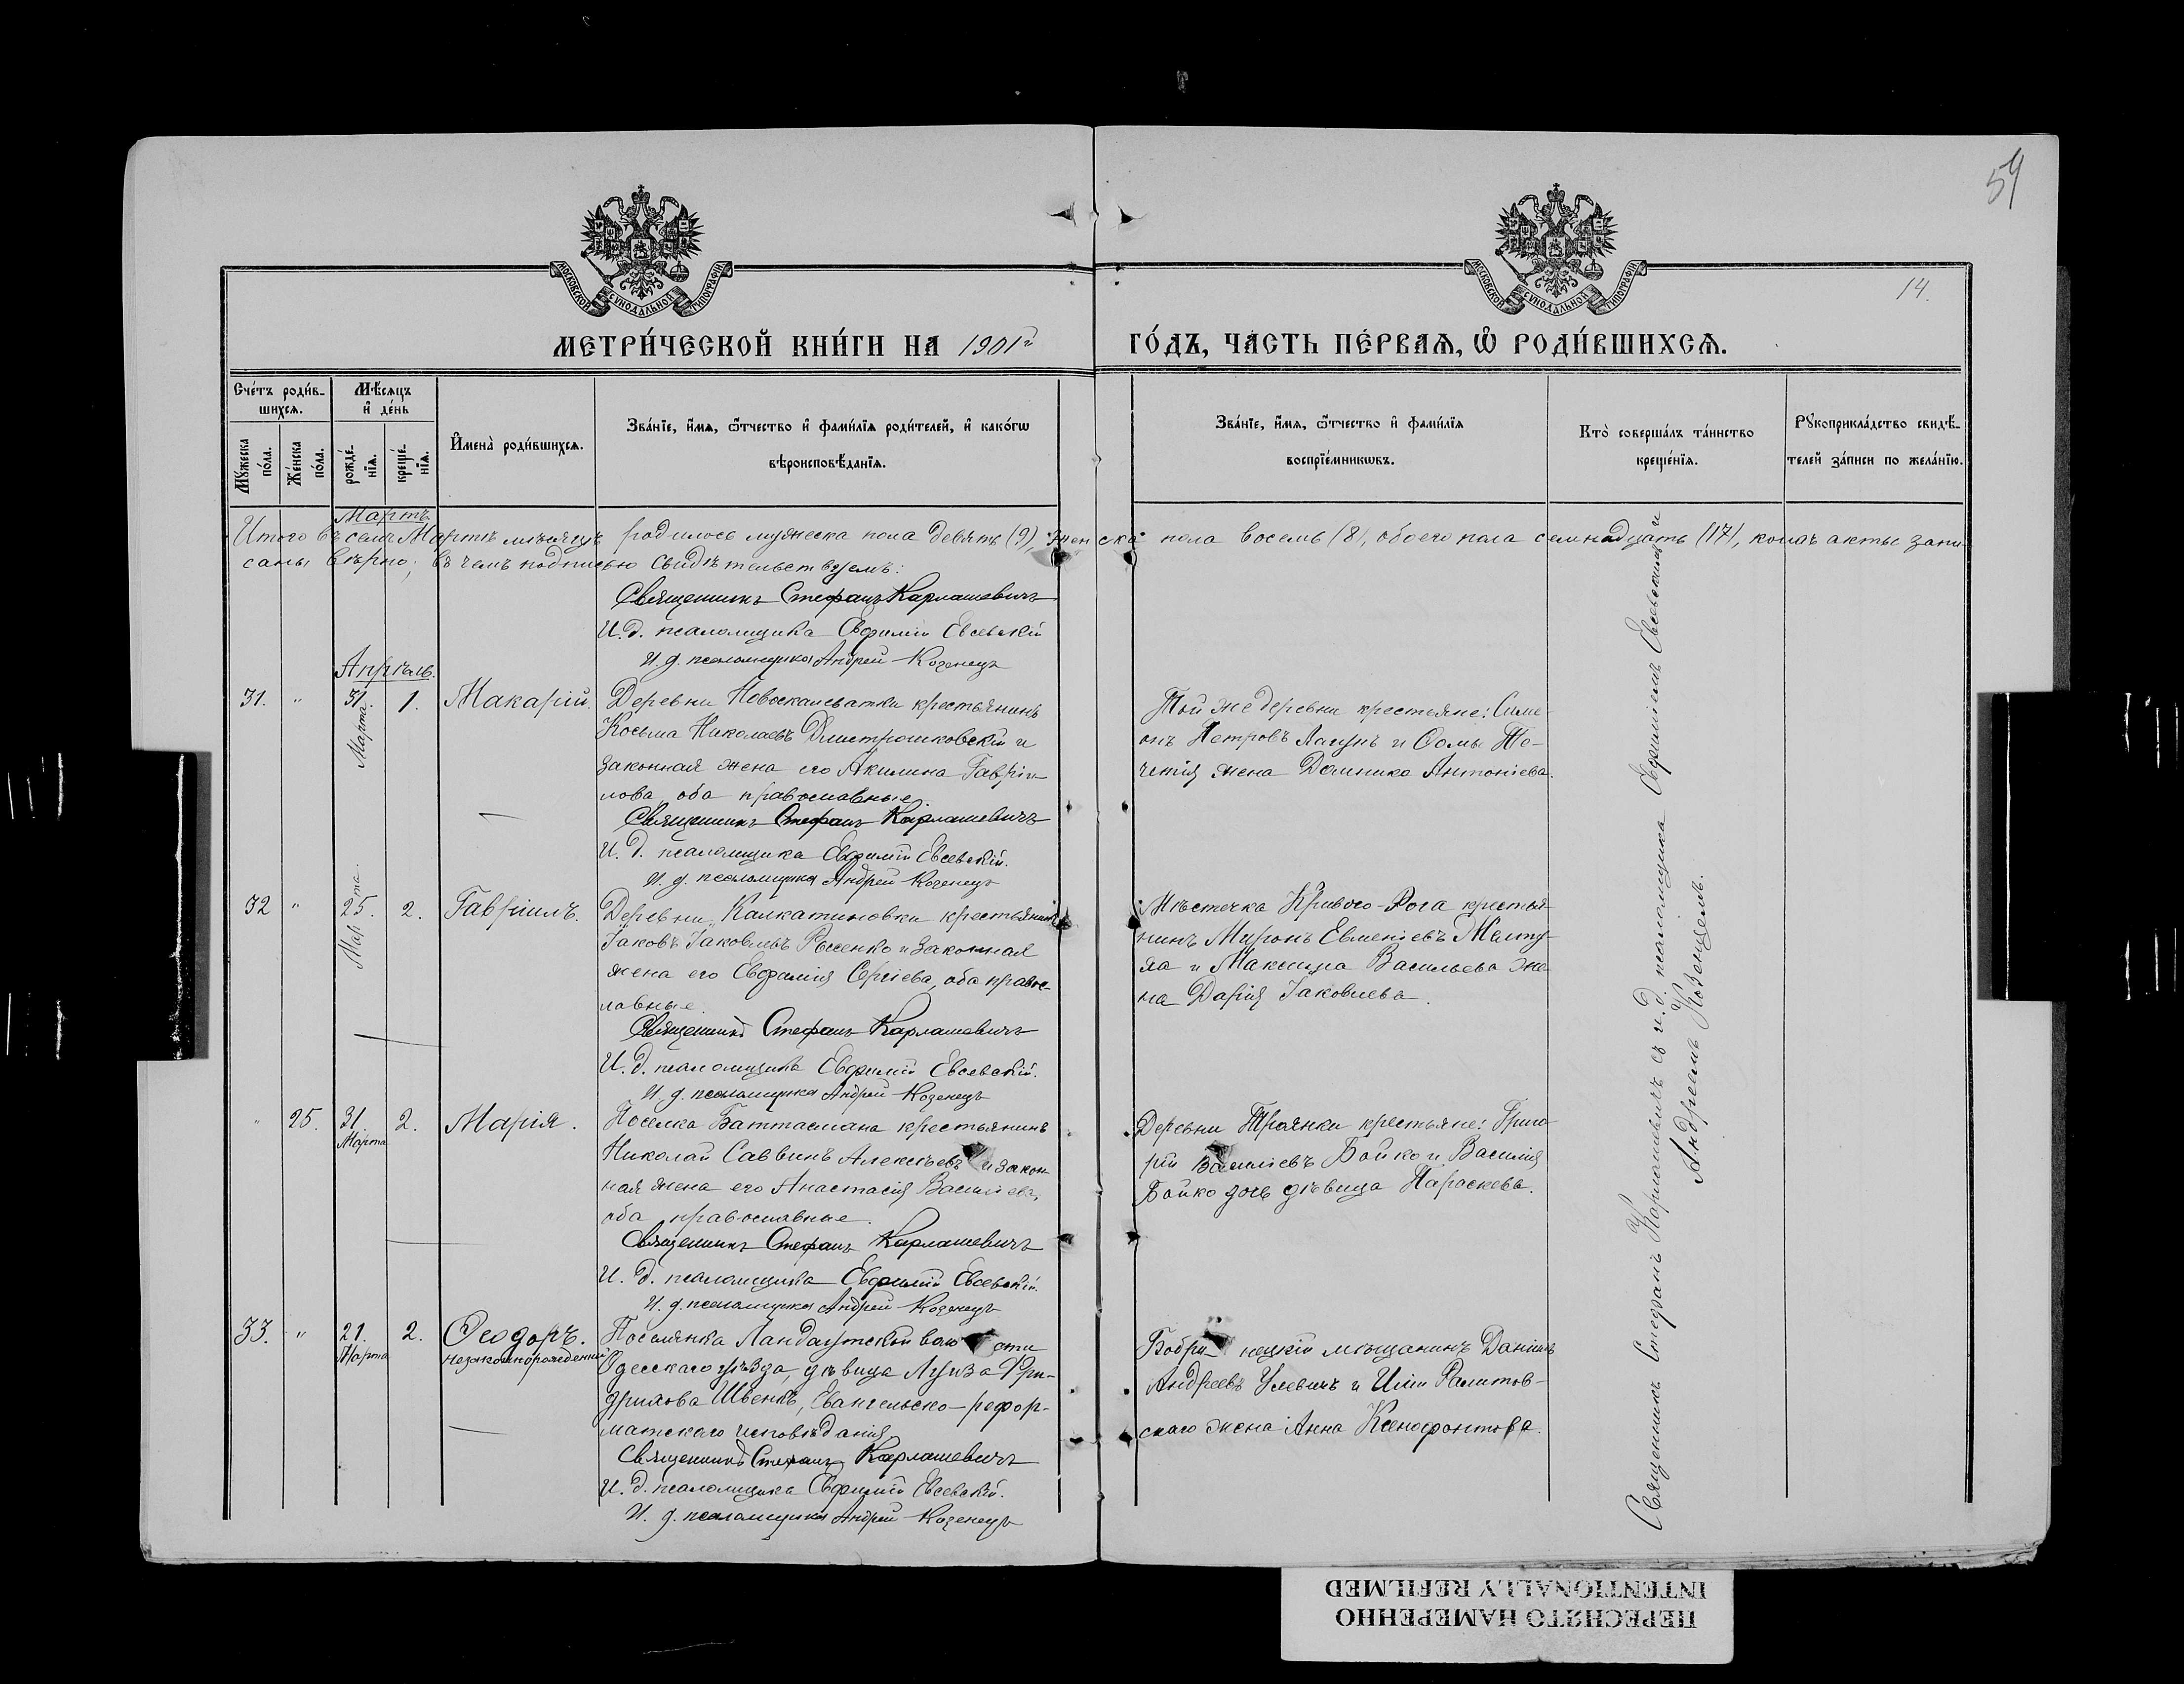 54
14.
МОСКОВСКОЙ СѴНОДАЛЬНОЙ ТИПОГРАФІИ
МОСКОВСКОЙ СѴНОДАЛЬНОЙ ТИПОГРАФІИ
МЕТРИ́ЧЕСКОЙ КНИ́ГИ НА 1901й ГО́ДЪ, ЧА́СТЬ ПЕ́РВАѦ, Ѡ҆ РОДИ́ВШИХСѦ.
Сче́тъ роди́в-
шихсѧ.
Мꙋ́жеска по́ла.
Же́нска по́ла.
Мѣ́сѧцъ
и҆ де́нь
рожде́-
нїѧ.
креще́-
нїѧ.
И҆мена̀ роди́вшихсѧ.
Зва́нїе, и҆́мѧ, ѻ҆́тчество и҆ фами́лїѧ роди́телей, и҆ како́гѡ
вѣроисповѣ́данїѧ.
Зва́нїе, и҆́мѧ, ѻ҆́тчество и҆ фами́лїѧ
воспрїе́мникѡвъ.
Кто̀ соверша́лъ та́инство
креще́нїѧ.
Рꙋкоприкла́дство свидѣ́-
телей за́писи по жела́нїю.
Мартъ
Итого въ семъ Мартѣ мѣсяцѣ родилось мужеска пола девять (9), женска пола восемь (8), обоего пола семнадцать (17), коихъ акты запи-
саны вѣрно; въ чемъ подписью свидѣтельствуемъ:
Священникъ Стефанъ Карлашевичъ
И. д. псаломщика Евфимій Евсевскій
И. д. псаломщика Андрей Козенецъ
Апрѣль.
31. " 31. Марта 1. Макарій.
Деревни Новоскалеватки крестьянинъ
Косьма Николаевъ Дмитрошковскій и
законная жена его Акилина Гаврі-
лова, оба православные.
Священникъ Стефанъ Карлашевичъ
И. д. псаломщика Евфимій Евсевскій.
И. д. псаломщика Андрей Козенецъ
Той же деревни крестьяне: Симе-
онъ Петровъ Лагунъ и Ѳомы
жена Домника Антоніева.
32 " 25. Марта 2. Гавріилъ.
Деревни Калкатиновки крестьянинъ
Іаковъ Іаковлевъ и законная
жена его Евфимія Сергіева, оба правос-
лавные.
Священникъ Стефанъ Карлашевичъ
И. д. псаломщика Евфимій Евсевскій.
И. д. псаломщика Андрей Козенецъ
Мѣстечка Кривого-Рога крестья-
нинъ Миронъ Евменіевъ
и Максима Васильева же-
на Дарія Іаковлева.
" 25. 31. Марта 2. Марія.
Поселка Баттасмана крестьянинъ
Николай Саввинъ Алексѣевъ и закон-
ная жена его Анастасія Василіева,
оба православные.
Священникъ Стефанъ Карлашевичъ
И. д. псаломщика Евфимій Евсевскій.
И. д. псаломщика Андрей Козенецъ
Деревни Троянки крестьяне: Григо-
рій Василіевъ Бойко и Василія
Бойко дочь дѣвица Параскева.
33. " 21. Марта 2. Ѳеодоръ.
незаконнорожденный
Поселянка Ландаутской воло сти
Одесскаго уѣзда, дѣвица Луиза Фри-
дрихова Швенкъ, Евангельско-рефор-
матскаго исповѣданія.
Священникъ Стефанъ Карлашевичъ
И. д. псаломщика Евфимій Евсевскій.
И. д. псаломщика Андрей Козенецъ
Бобри- нецкій мѣщанинъ Даніилъ
Андреевъ Улевичъ и Иліи Рамитов-
скаго жена Анна Ксенофонтова.
Священникъ Стефанъ Карлашевичъ съ и. д. псаломщика Евфиміемъ Евсевскимъ и
Андреемъ Козенцемъ.
ПЕРЕСНЯТО НАМЕРЕННО
INTENTIONALLY REFILMED